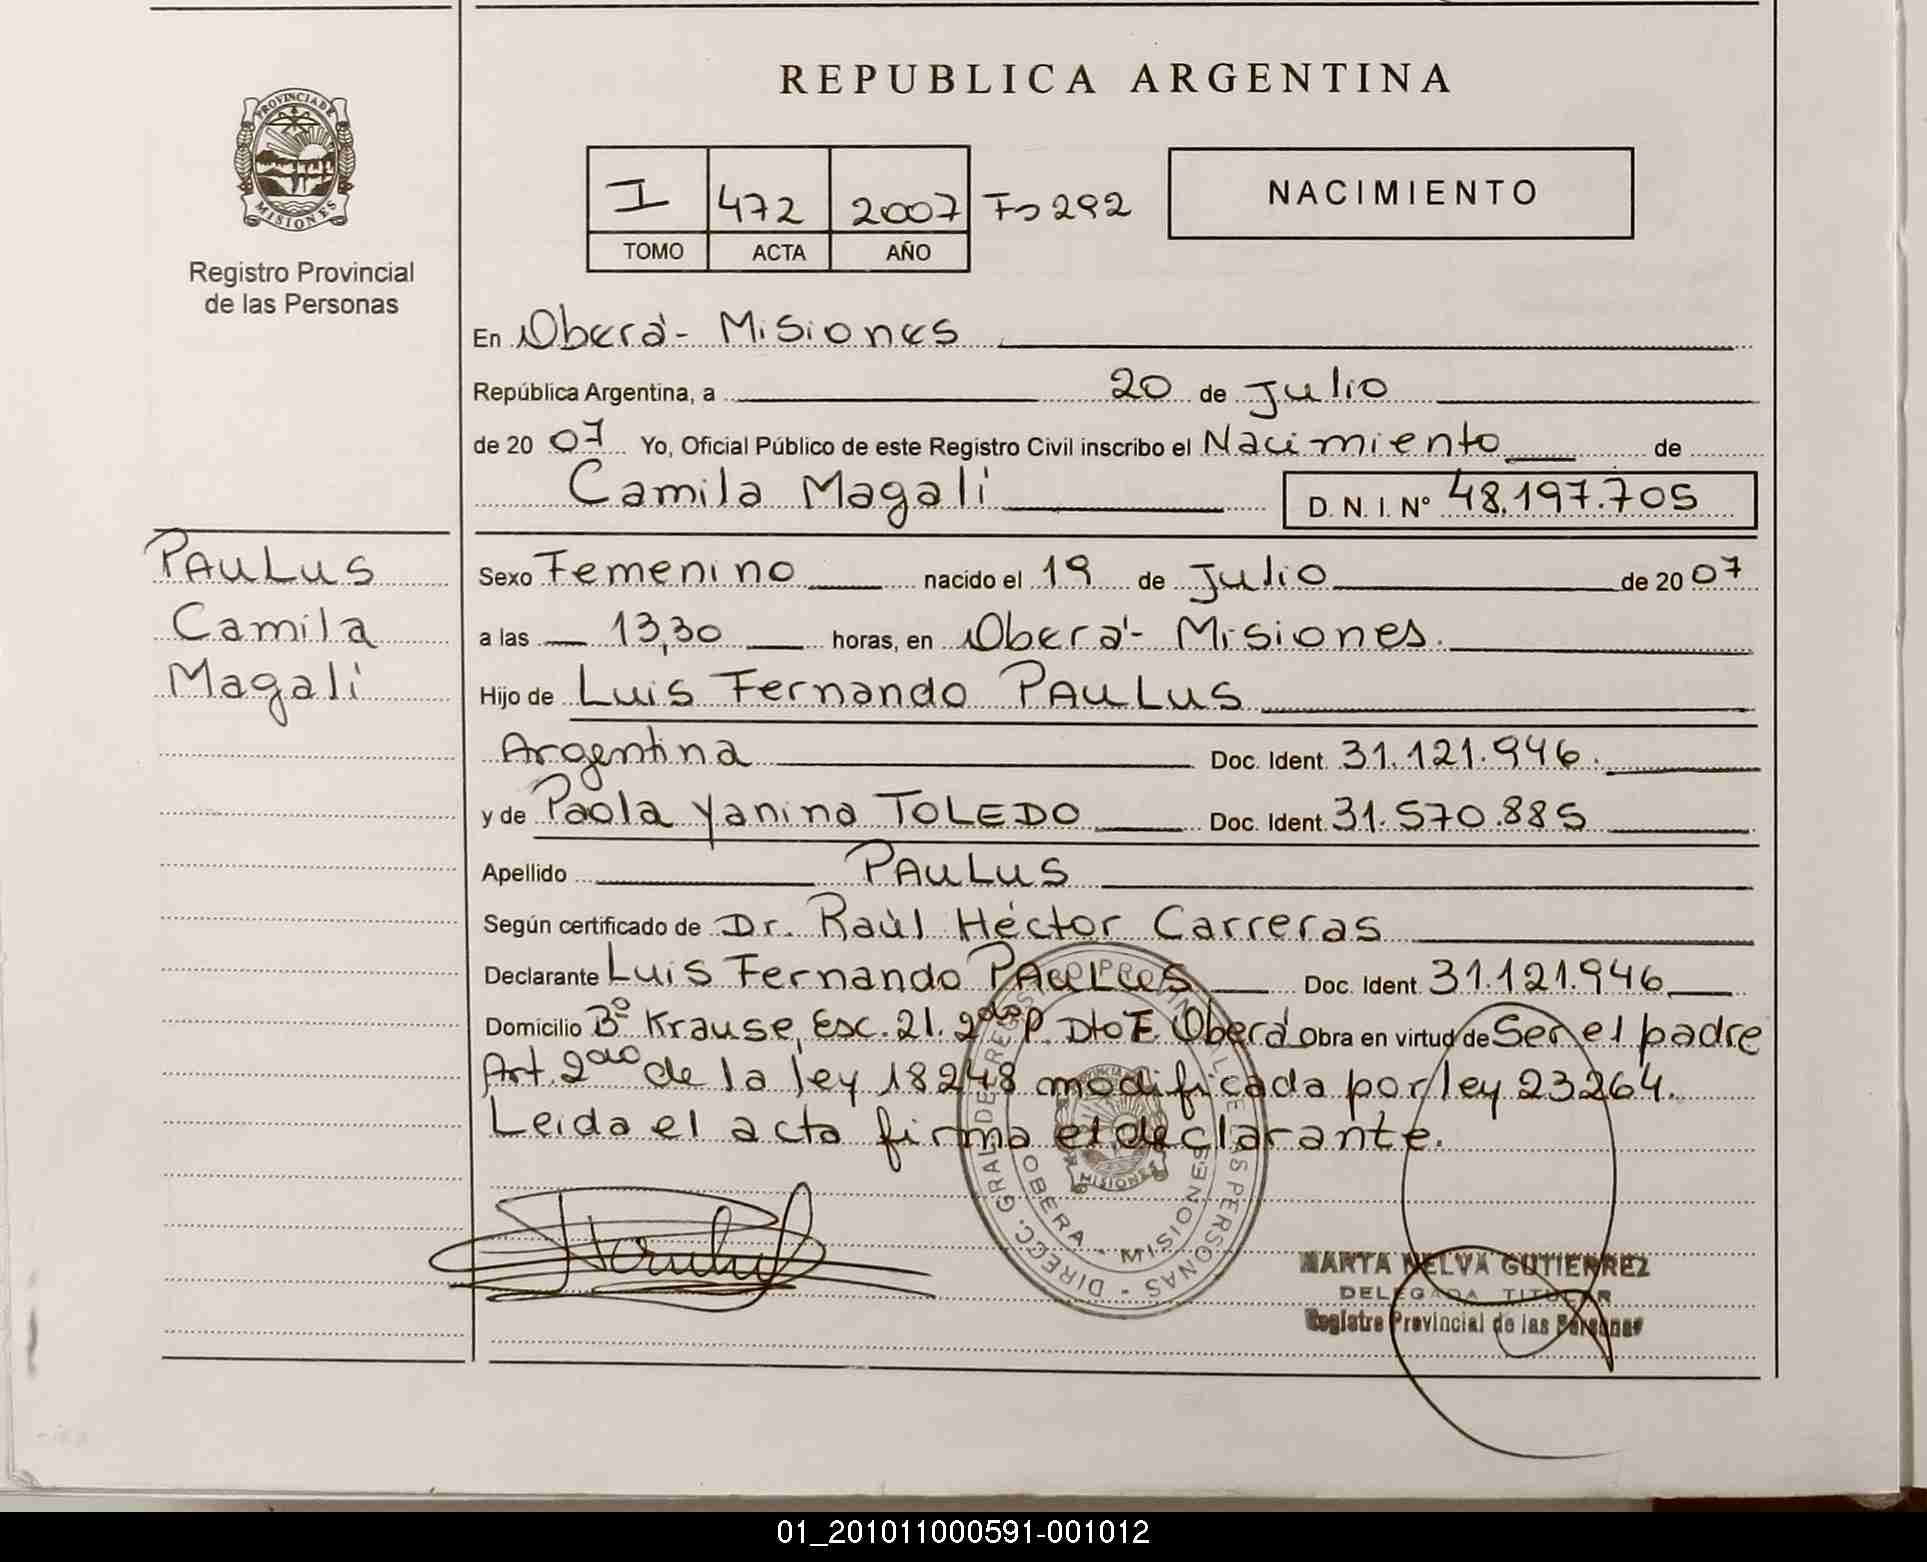 REPUBLICA ARGENTINA
PROVINCIA DE MISIONES
Registro Provincial
de las Personas
I 472 2007 Fo 292
TOMO ACTA AÑO
NACIMIENTO
En Oberá - Misiones
República Argentina, a 20 de Julio
de 20 07 Yo, Oficial Público de este Registro Civil inscribo el Nacimiento de
Camila Magalí D. N. I. Nº 48.197.705
PAULUS
Camila
Magalí
Sexo Femenino nacido el 19 de Julio de 20 07
a las 13,30 horas, en Oberá - Misiones.
Hijo de Luis Fernando PAULUS
Argentina Doc. Ident. 31.121.946.
y de Paola Yanina TOLEDO Doc. Ident. 31.570.885
Apellido PAULUS
Según certificado de Dr. Raúl Héctor Carreras
Declarante Luis Fernando PAULUS Doc. Ident. 31.121.946
Domicilio Bº Krause, Esc. 21. 2do P. Dto E. Oberá Obra en virtud de Ser el padre
Art. 2do de la ley 18248 modificada por ley 23264.
Leida el acta firma el declarante.
DIRECC. GRAL DE REGISTRO PROVINCIAL DE LAS PERSONAS
OBERA - MISIONES
PROVINCIA DE MISIONES
MARTA NELVA GUTIERREZ
DELEGADA TITULAR
Registro Provincial de las Personas
01_201011000591-001012